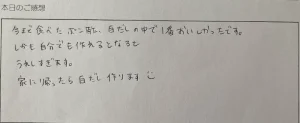 本日のご感想
今まで食べたポン酢、白だしの中で1番おいしかったです。
しかも自分でも作れるとなると
うれしすぎます。
家に帰ったら白だし作ります